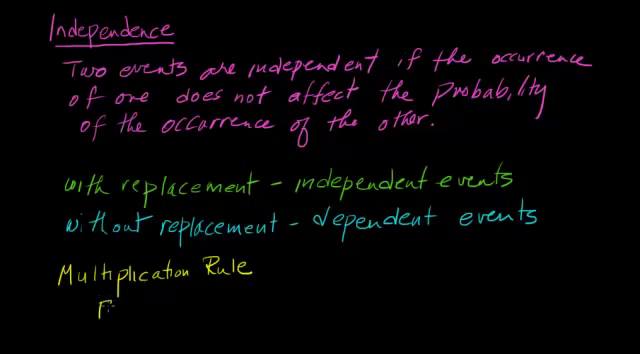 Independence
Two events are independent if the occurrence
of one does not affect the probability
of the occurrence of the other.
with replacement - independent events
without replacement - dependent events
Multiplication Rule